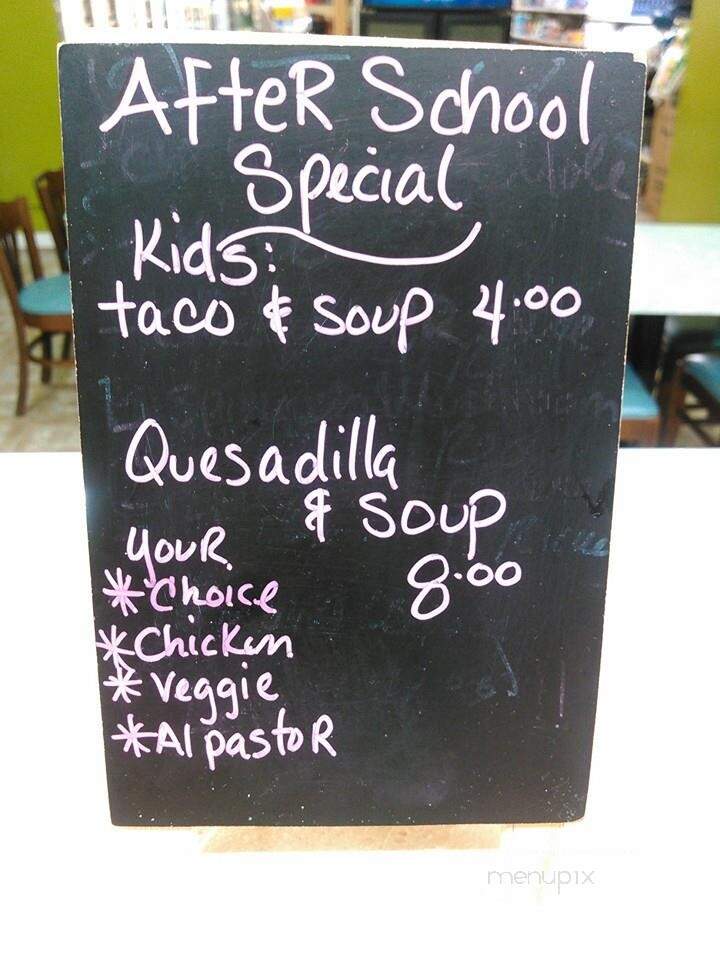 AfteR School
Special
Kids:
taco & Soup 4.00
Quesadilla
& Soup
youR
*Choice
8.00
*Chicken
*Veggie
*Al pastoR
menupix